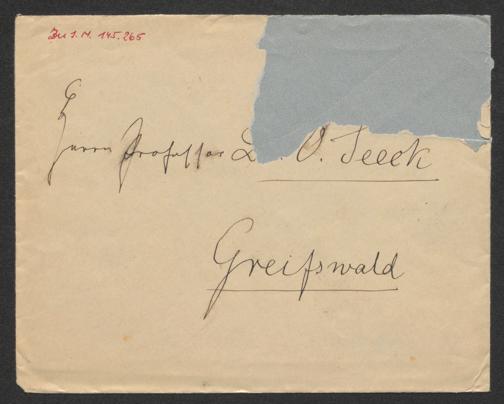 Zu I.N. 145.265
Herrn Professor Dr. O. Seeck
Greifswald